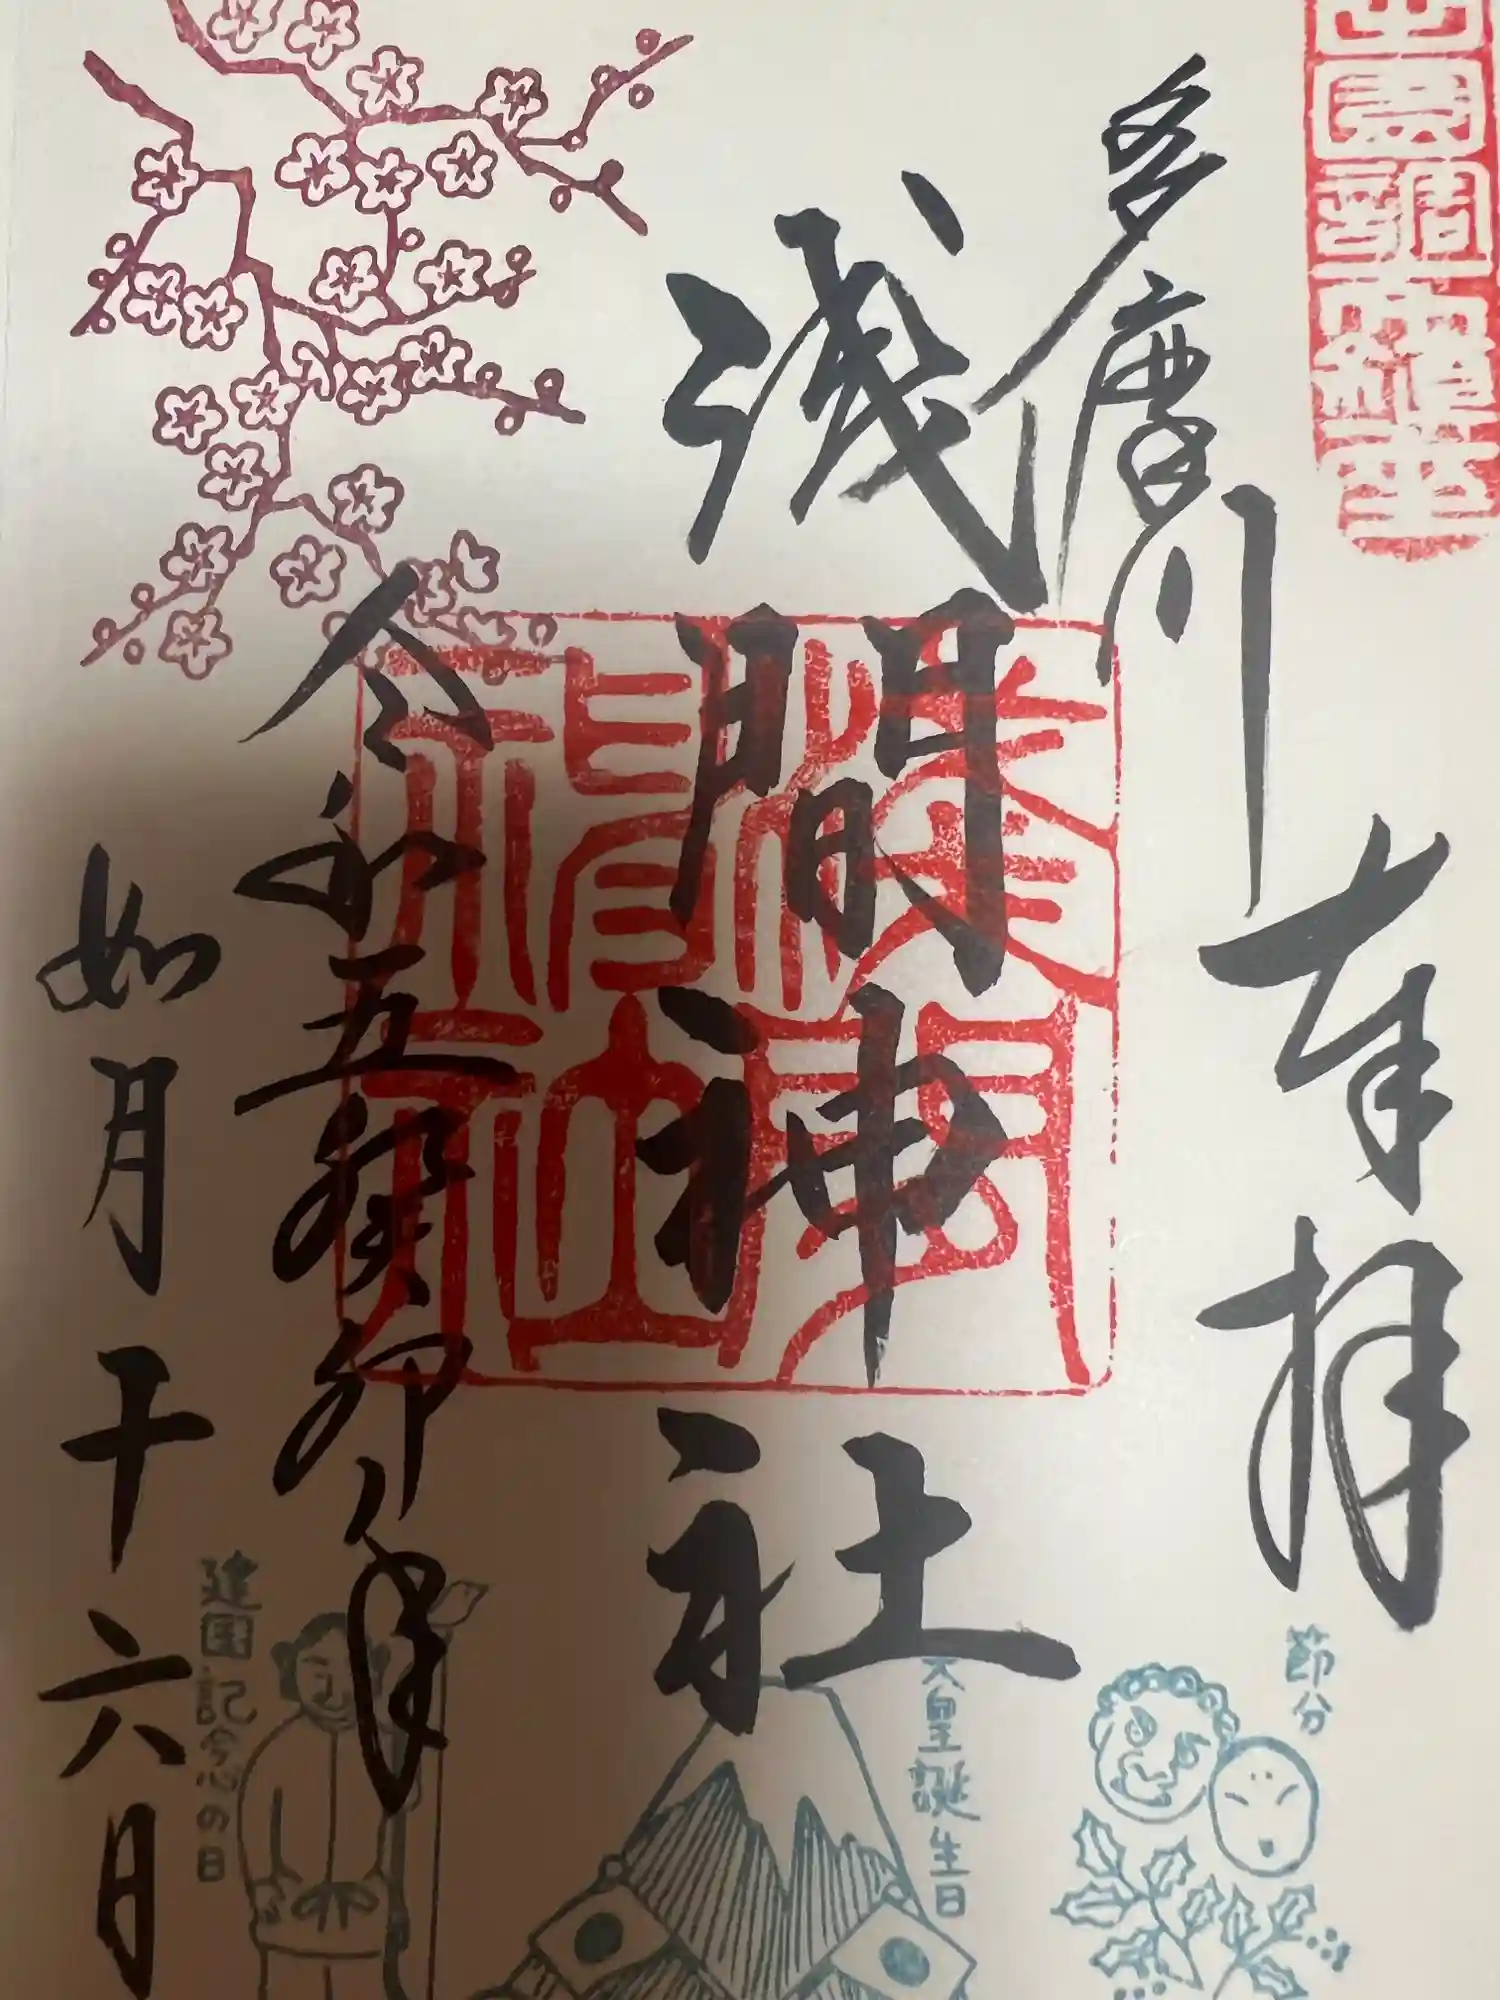 奉拝
多摩川
浅間神社
令和五癸卯年
如月十六日
節分
天皇誕生日
建国記念の日